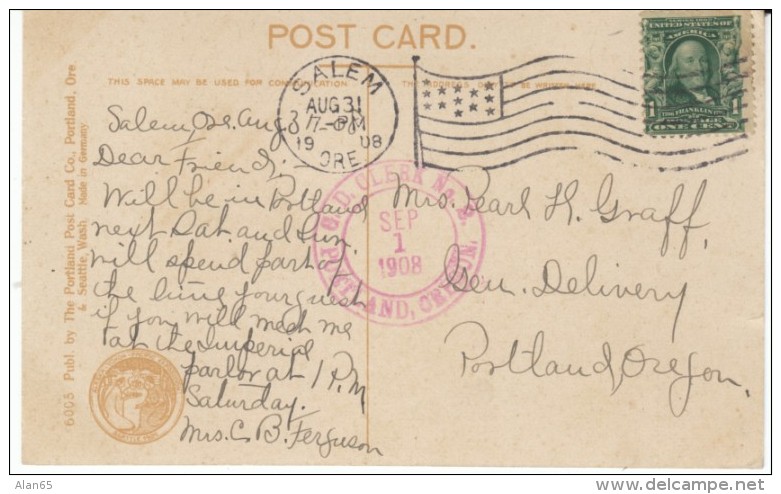 POST CARD.
THIS SPACE MAY BE USED FOR COMMUNICATION
THE ADDRESS
SALEM
AUG 31
7-PM
19 08
ORE
UNITED STATES OF AMERICA
1 1
FRANKLIN
ONE CENT
Salem Ore. Aug 31
Dear Friend;—
Will be in Portland
next Sat. and Sun.
will spend part of
the time your guest
if you will meet me
at the Imperial
parlor at 1 P.M
Saturday.
Mrs. C. B. Ferguson
CLERK No.
SEP
1
1908
PORTLAND, OREGON.
Mrs. Pearl H. Graff,
Gen. Delivery
Portland, Oregon.
6005 Publ. by The Portland Post Card Co., Portland, Ore.
& Seattle, Wash. Made in Germany
Alan65
delcampe.net